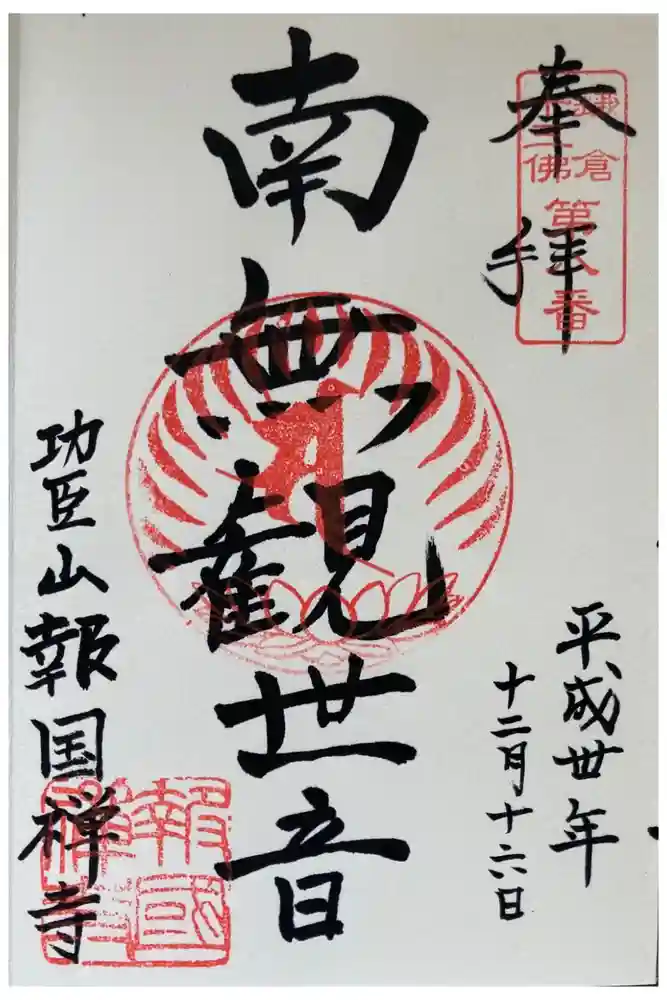 奉拝
鎌倉
十三佛
第八番
平成丗年
十二月十六日
南無観世音
功臣山報国禅寺
報國
禅寺